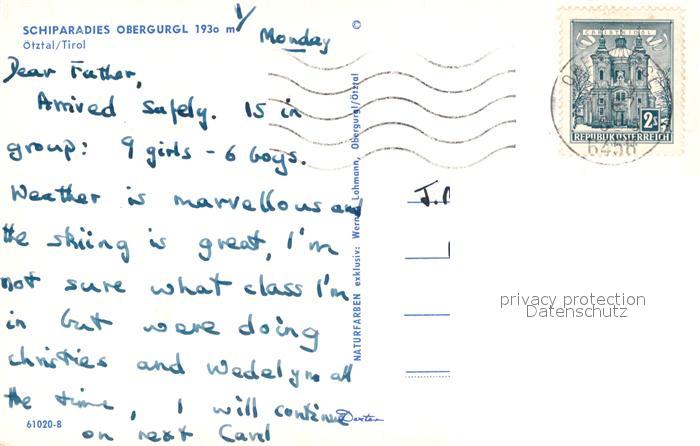 SCHIPARADIES OBERGURGL 1930 m
Ötztal/Tirol
1/
Monday
Dear Father,
Arrived safely. 15 in
group: 9 girls - 6 boys.
Weather is marvellous and
the skiing is great, I'm
not sure what class I'm
in but were doing
christies and Wedelyn all
the time, I will continue
on next Card
61020-B
©
NATURFARBEN exklusiv: Lohmann, Obergurgl/Ötztal
CHRISTKINDL
2s
REPUBLIK ÖSTERREICH
6456
J.
privacy protection
Datenschutz